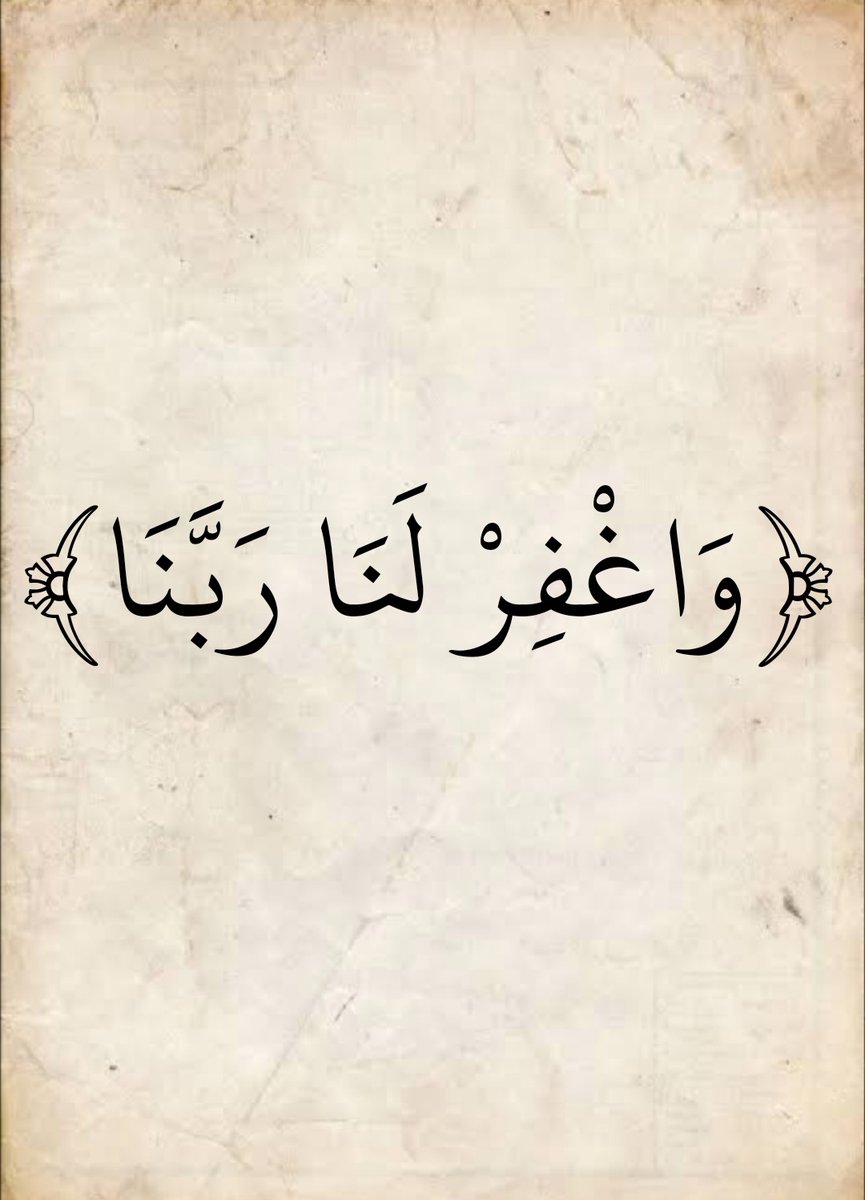 ﴿وَاغْفِرْ لَنَا رَبَّنَا﴾